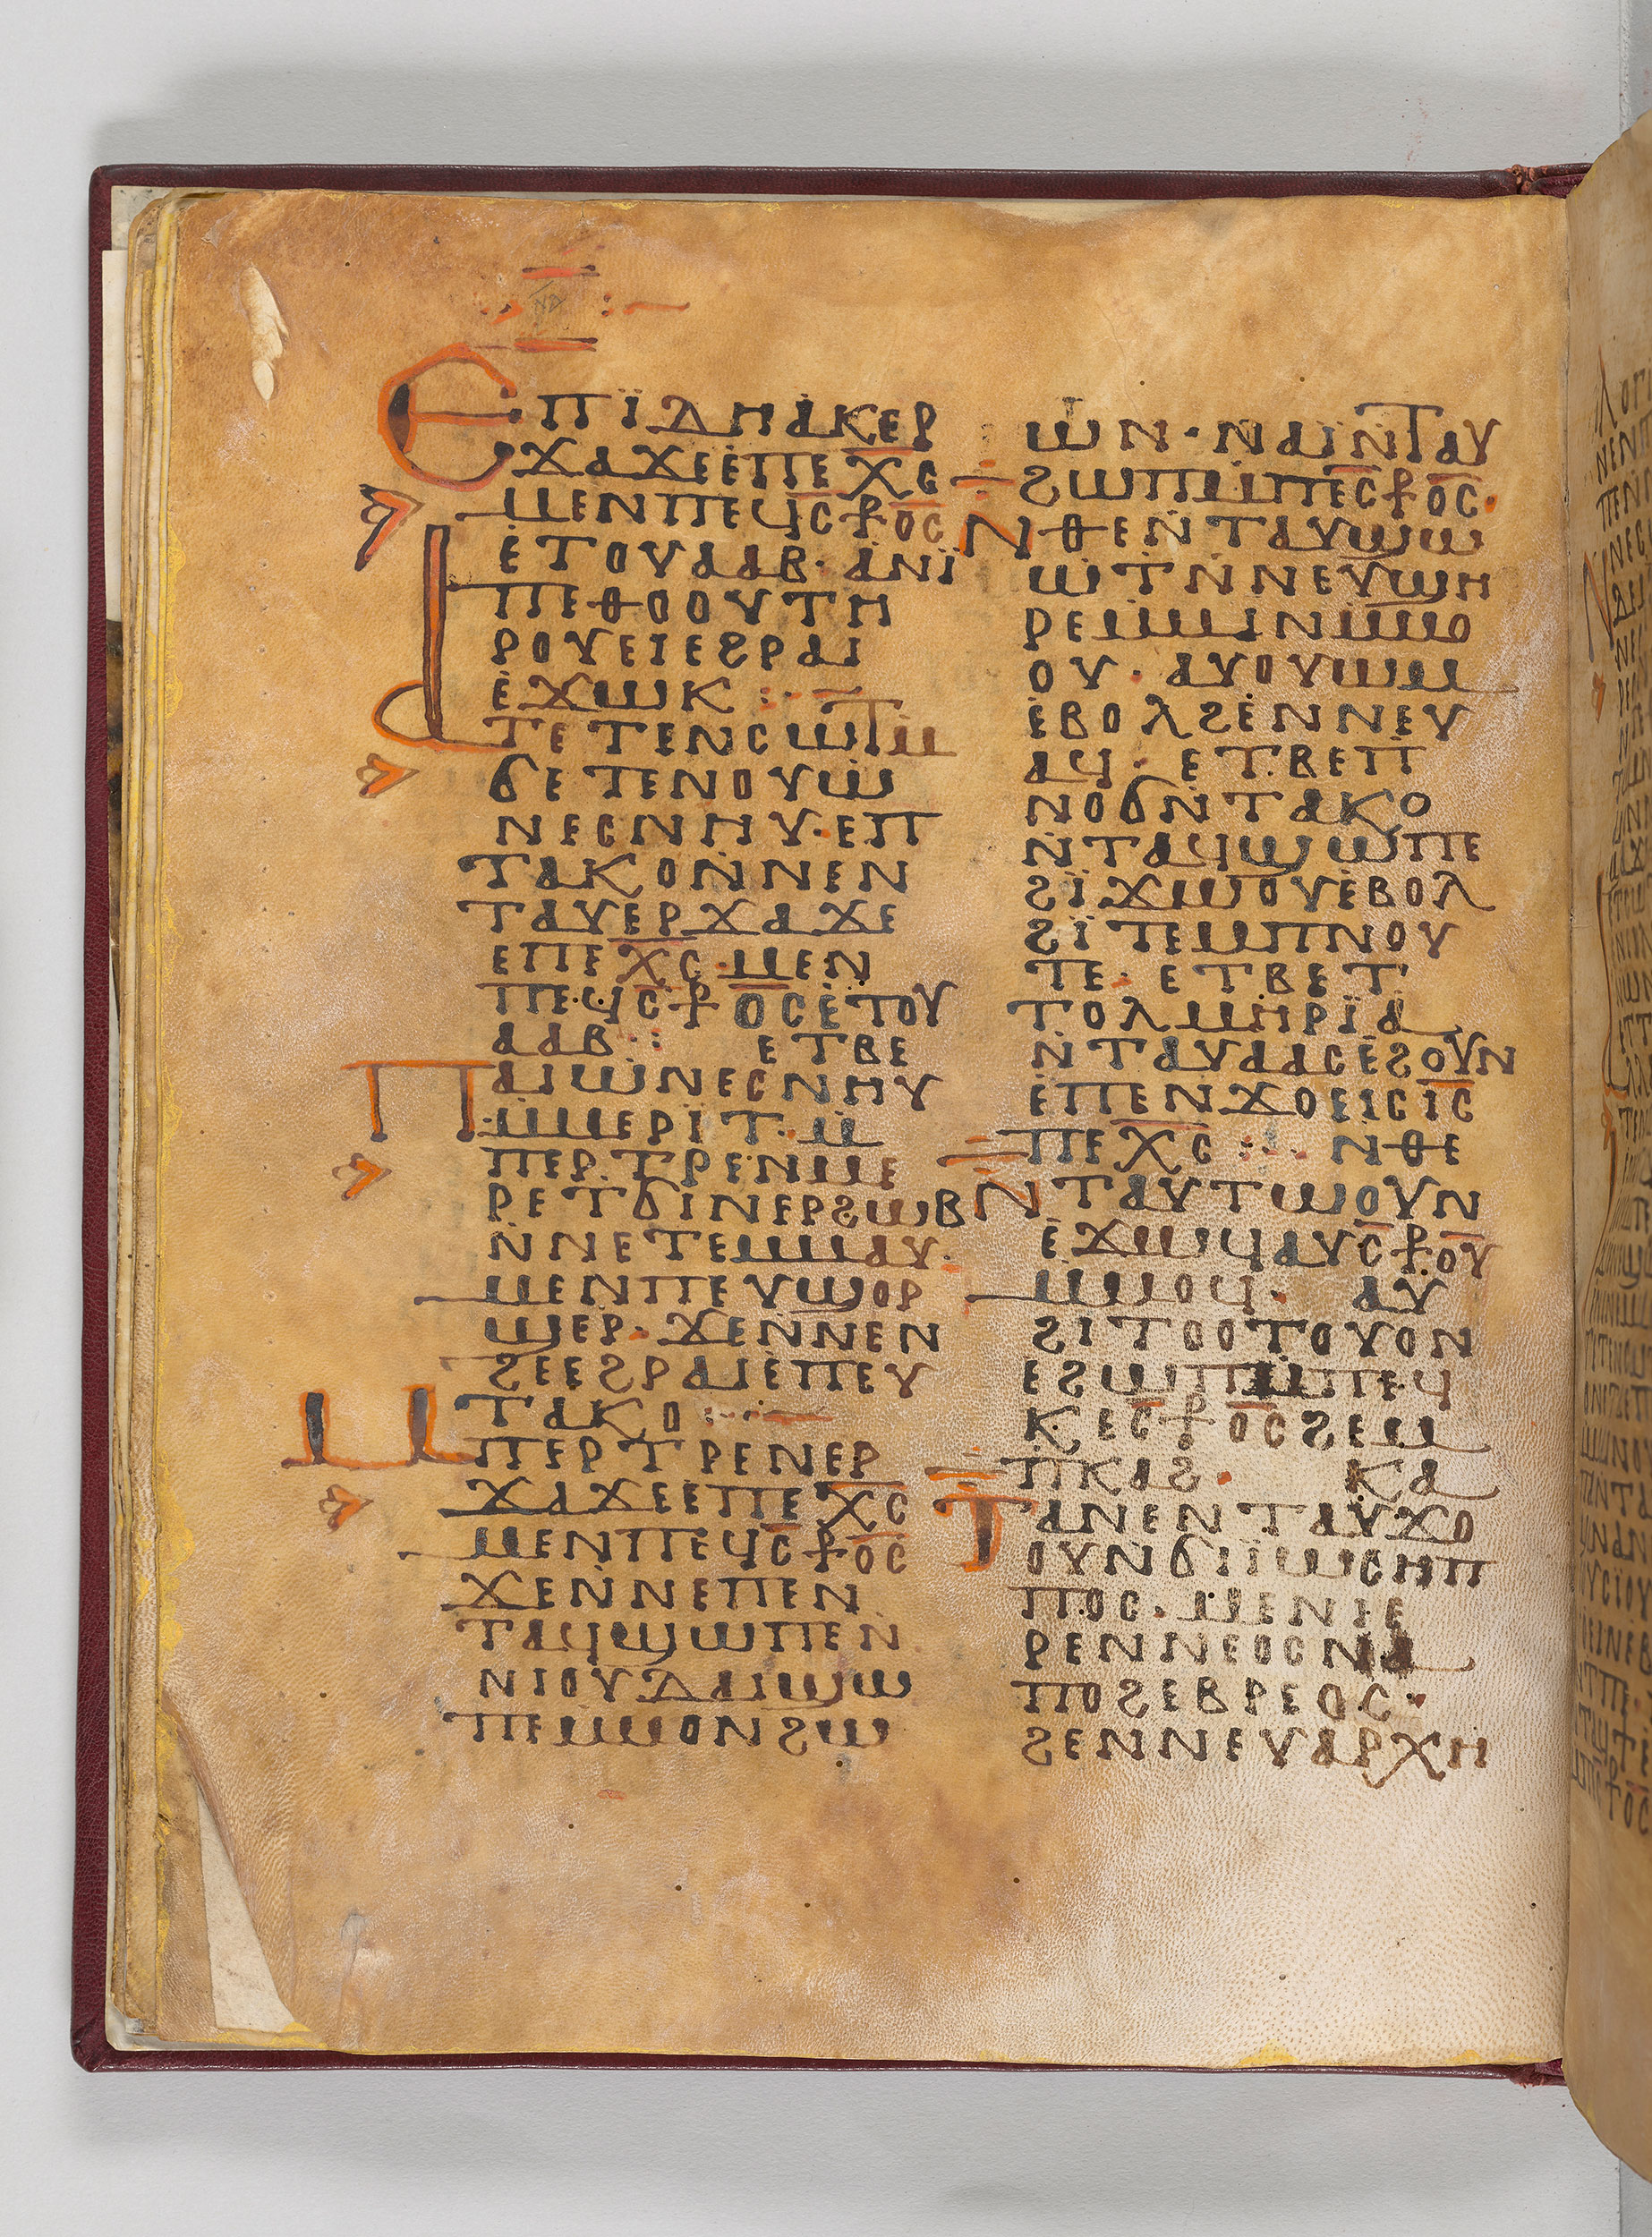 ⲚⲆ
ⲈⲠⲒⲆⲎⲀⲔⲈⲢ
ϪⲀϪⲈⲈⲠⲈⲬⲤ
ⲘⲈⲚⲠⲈϤⲤ⳨ⲞⲤ
ⲈⲦⲞⲨⲀⲀⲂ· ⲀⲚⲒ
ⲠⲈⲐⲞⲞⲨⲦⲎ
ⲢⲞⲨⲈⲒⲈϨⲢⲀⲒ
ⲈϪⲰⲔ :·—
ⲀⲦⲈⲦⲈⲚⲤⲰⲦⲘ
ϬⲈⲦⲈⲚⲞⲨⲰ
ⲚⲈⲤⲚⲎⲨ·ⲈⲠ
ⲦⲀⲔⲞⲚⲚⲈⲚ
ⲦⲀⲨⲈⲢϪⲀϪⲈ
ⲈⲠⲈⲬⲤ·ⲘⲈⲚ
ⲠⲈϤⲤ⳨ⲞⲤⲈⲦⲞⲨ
ⲀⲀⲂ·: ⲈⲦⲂⲈ
ⲠⲀⲒⲰⲚⲈⲤⲚⲎⲨ
ⲘⲘⲈⲢⲒⲦ·Ⲙ
ⲠⲈⲢⲦⲢⲈⲚⲘⲈ
ⲢⲈⲦϬⲒⲚⲈⲢϨⲰⲂ
ⲚⲚⲈⲦⲈⲘⲘⲀⲨ·
ⲘⲈⲚⲠⲈⲨϢⲞⲢ
ϢⲈⲢ· ϪⲈⲚⲚⲈⲚ
ϨⲈⲈϨⲢⲀⲒⲈⲠⲈⲨ
ⲦⲀⲔⲞ :·—
ⲘⲠⲈⲢⲦⲢⲈⲚⲈⲢ
ϪⲀϪⲈⲈⲠⲈⲬⲤ
ⲘⲈⲚⲠⲈϤⲤ⳨ⲞⲤ
ϪⲈⲚⲚⲈⲠⲈⲚ
ⲦⲀϤϢⲰⲠⲈⲚ
ⲚⲒⲞⲨⲆⲀⲒϢⲰ
ⲠⲈⲘⲘⲞⲚϨⲰ
ⲰⲚ·ⲚⲀⲒⲚⲦⲀⲨ
ϨⲰⲠⲘⲠⲈⲤ⳨ⲞⲤ·
ⲚⲐⲈⲚⲦⲀⲨϢⲰ
ⲰⲦⲚⲚⲈⲨϢⲎ
ⲢⲈⲘⲘⲒⲚⲘⲘⲞ
ⲞⲨ· ⲀⲨⲞⲨⲰⲘ
ⲈⲂⲞⲖϨⲈⲚⲚⲈⲨ
ⲀϤ· ⲈⲦⲂⲈⲠ
ⲚⲞϬⲚⲦⲀⲔⲞ
ⲚⲦⲀϤϢⲰⲠⲈ
ϨⲒϪⲰⲞⲨⲈⲂⲞⲖ
ϨⲒⲦⲈⲘⲠⲚⲞⲨ
ⲦⲈ· ⲈⲦⲂⲈⲦ
ⲦⲞⲖⲘⲎⲢⲒⲀ
ⲚⲦⲀⲨⲀⲀⲤⲈϨⲞⲨⲚ
ⲈⲠⲈⲚϪⲞⲈⲒⲤⲒⲤ
ⲠⲈⲬⲤ :·. ⲚⲐⲈ
ⲚⲦⲀⲨⲦⲰⲞⲨⲚ
ⲈϪⲰϤⲀⲨⲤ⳨ⲞⲨ
ⲘⲘⲞϤ· ⲀⲨ
ϨⲒⲦⲞⲞⲦⲞⲨⲞⲚ
ⲈϨⲰⲠⲘⲠⲈϤ
ⲔⲈⲤ⳨ⲞⲤϨⲈⲘ
ⲠⲔⲀϨ· ⲔⲀ
ⲦⲀⲚⲈⲚⲦⲀⲨϪⲞ
ⲞⲨⲚϬⲒⲒⲰⲤⲎⲠ
ⲠⲞⲤ·ⲘⲈⲚⲒⲈ
ⲢⲈⲚⲚⲈⲞⲤⲚⲀ
ⲠⲞϨⲈⲂⲢⲈⲞⲤ·
ϨⲈⲚⲚⲈⲨⲀⲢⲬⲎ